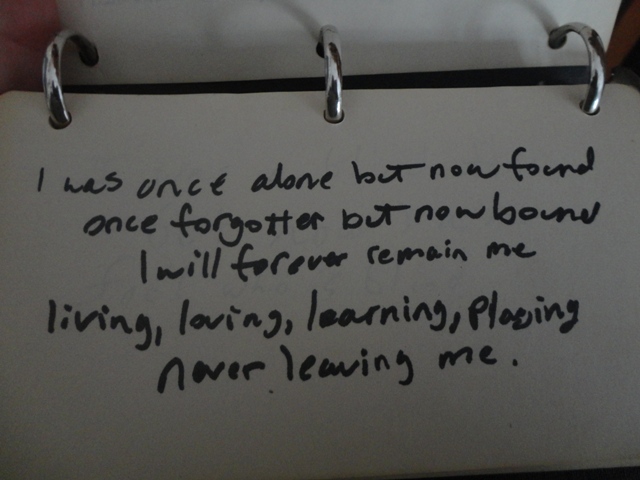 I was once alone but now found
once forgotten but now bound
I will forever remain me
living, loving, learning, playing
never leaving me.